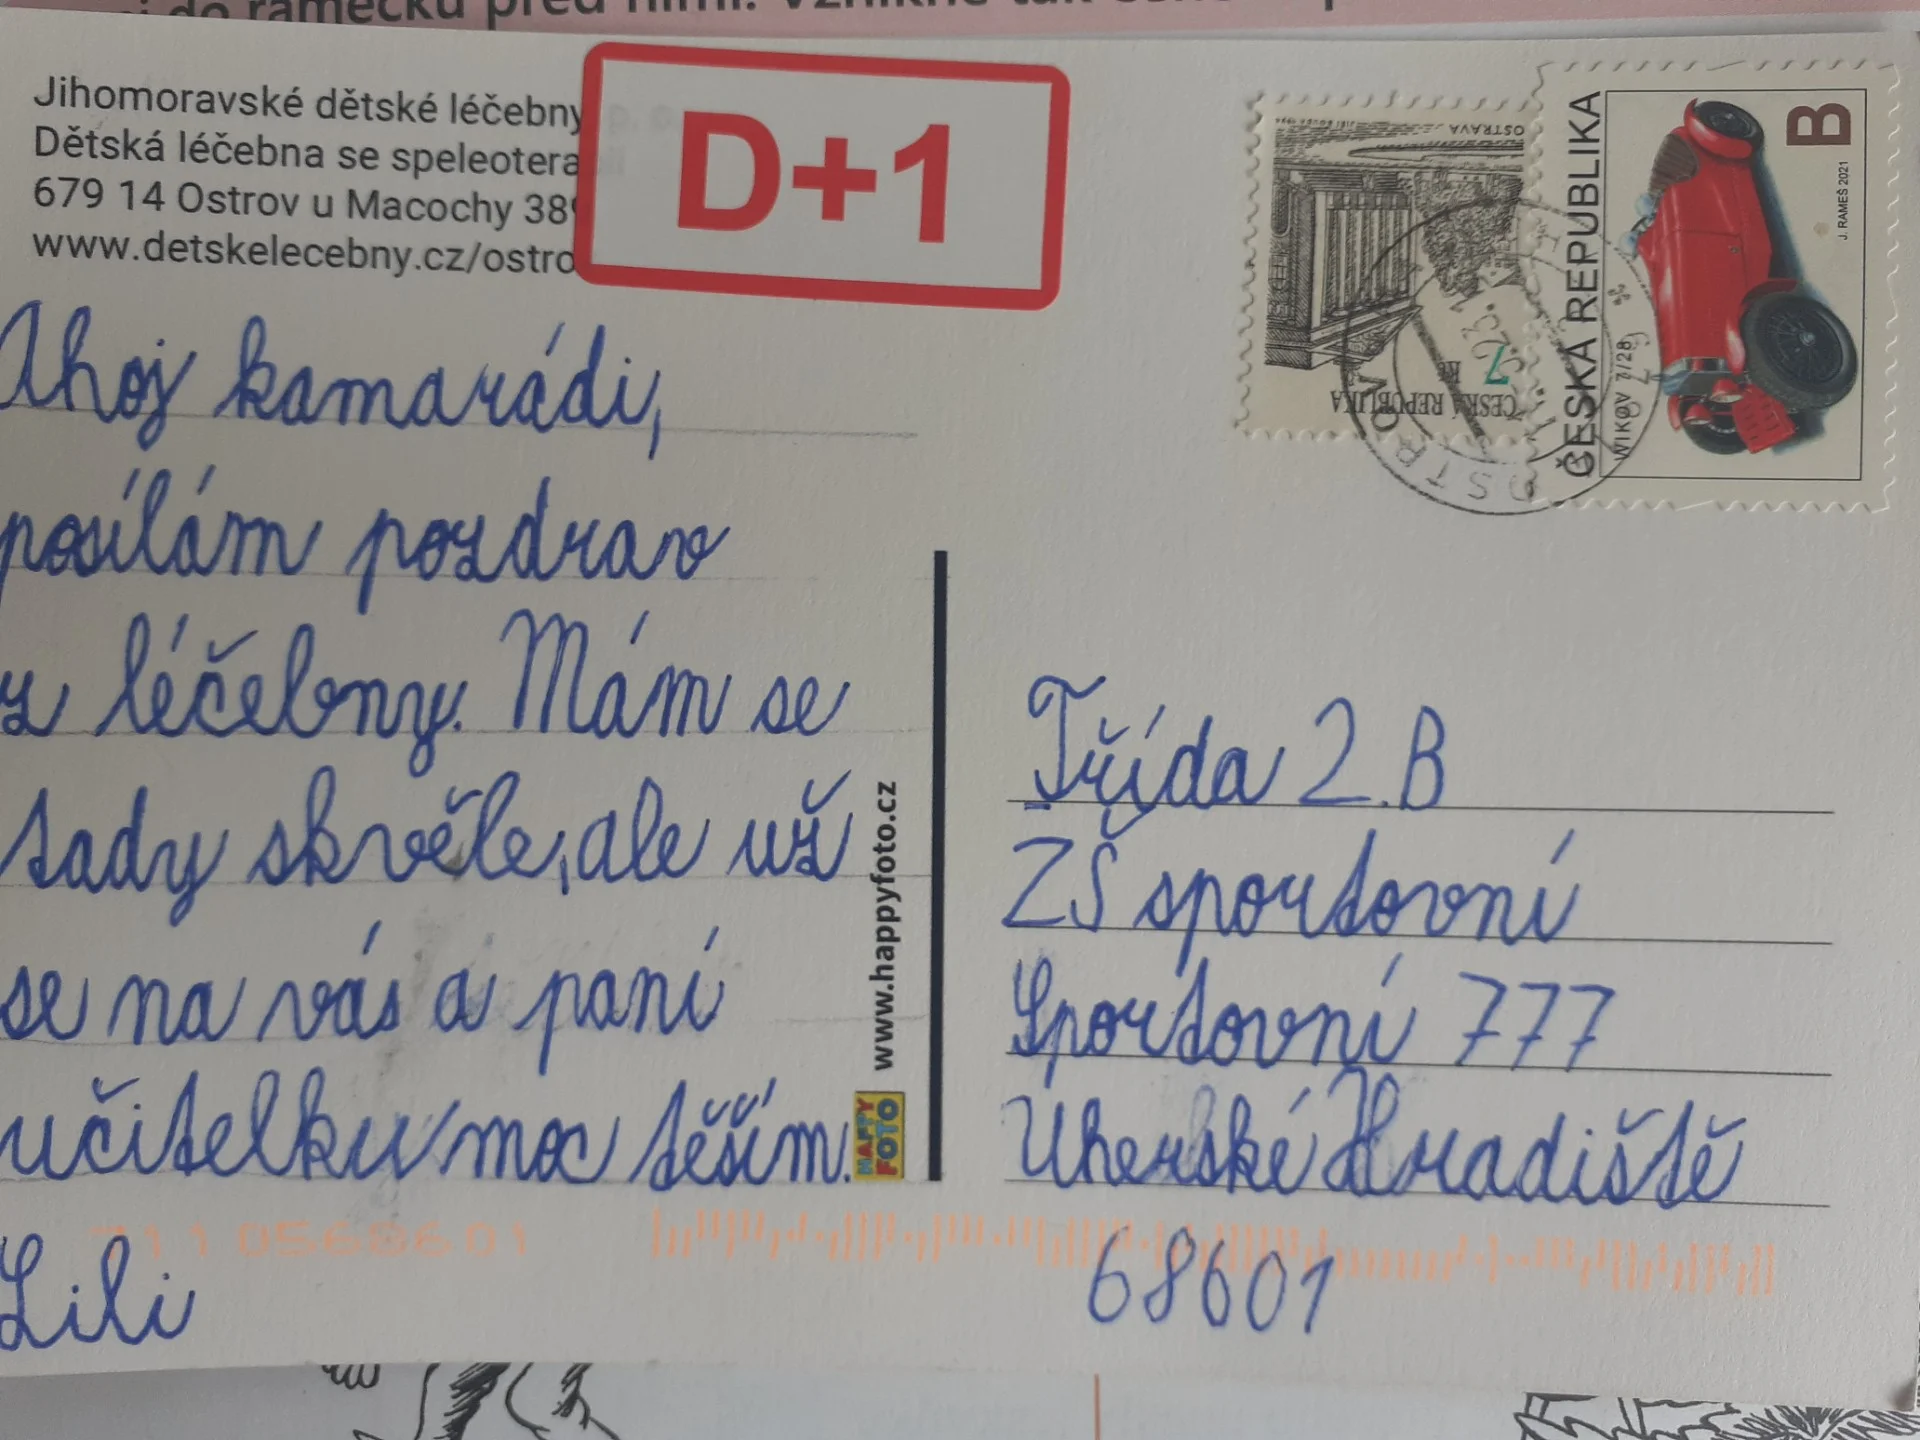 do rámečku před nimi. Vznikne tak
Jihomoravské dětské léčebny
Dětská léčebna se speleotera
679 14 Ostrov u Macochy 389
www.detskelecebny.cz/ostro
D+1
OSTRAVA
7 Kč
ČESKÁ REPUBLIKA
ČESKÁ REPUBLIKA
WIKOV 7/28
B
J. RAMEŠ 2021
Ahoj kamarádi,
posílám pozdrav
z léčebny. Mám se
tady skvěle, ale už
se na vás a paní
učitelku moc těším.
Lili
www.happyfoto.cz
HAPPY FOTO
Třída 2.B
ZŠ sportovní
Sportovní 777
Uherské Hradiště
68601
7110568601